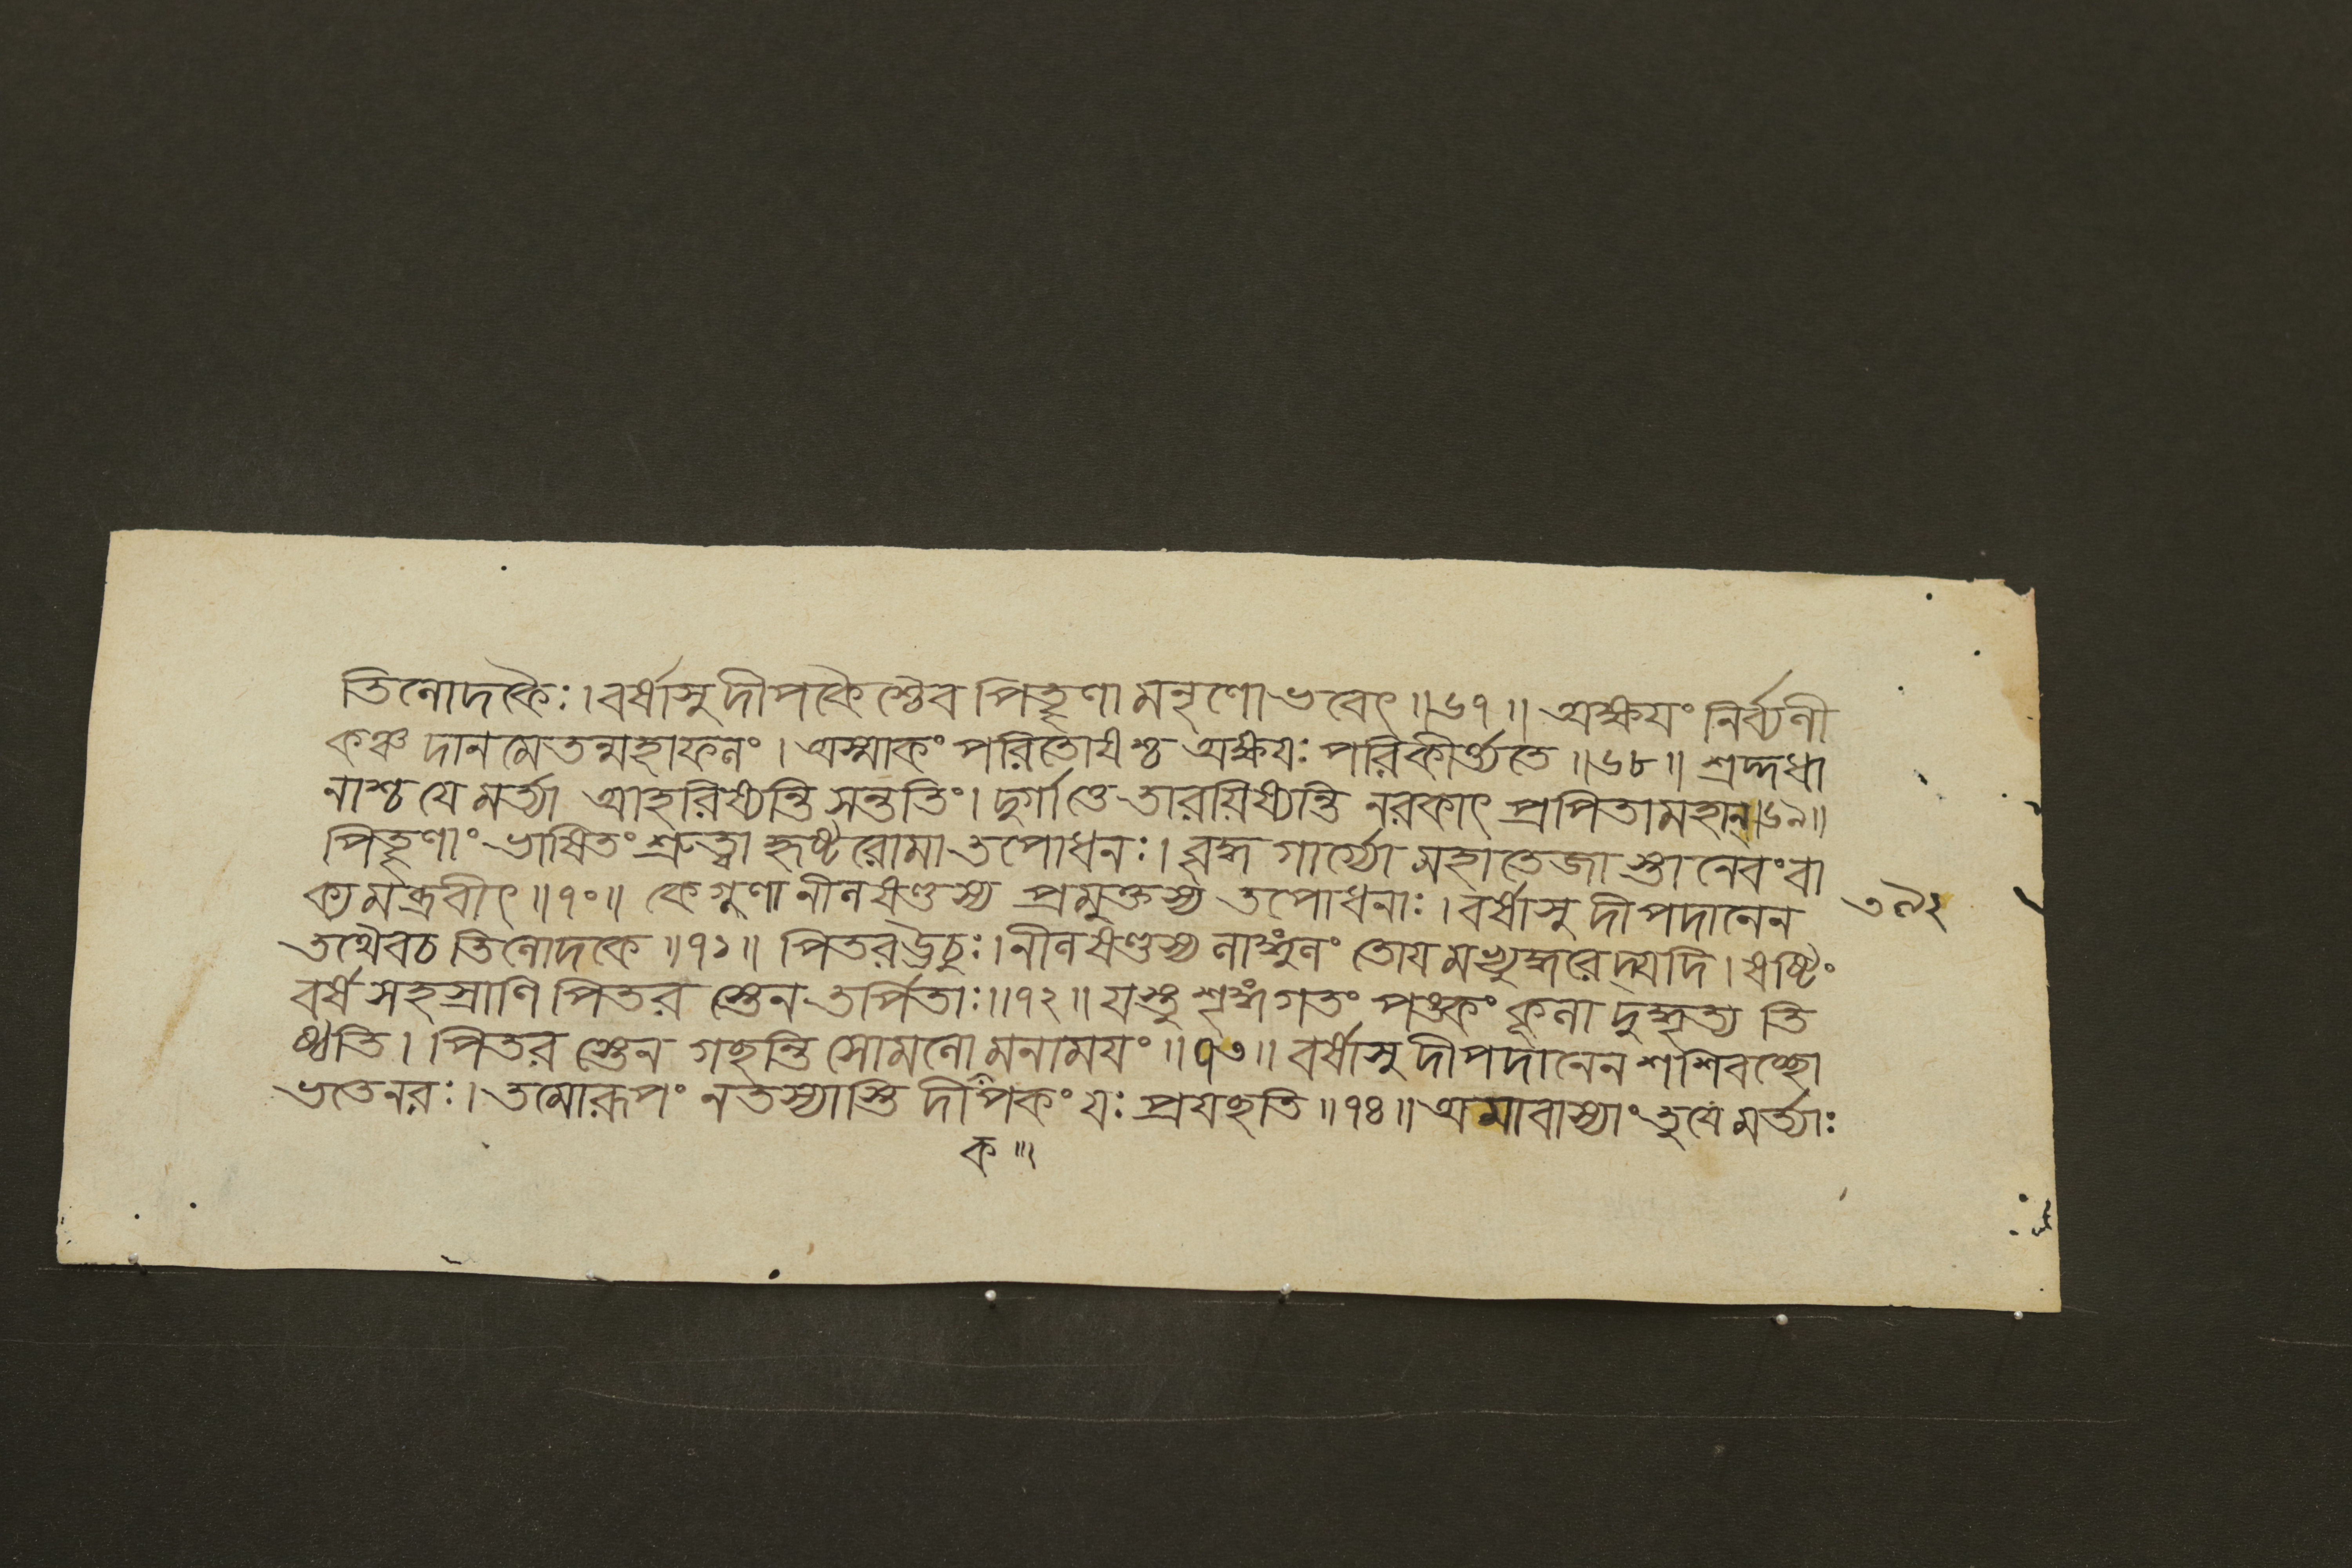 তিলোদকৈঃ।বর্ষাসু দীপকৈশ্চৈব পিতৄণামনৃণো ভবেৎ॥৬৭॥ অক্ষয়ং নির্ব্যলী
কঞ্চ দানমেতন্মহাফলং। অস্মাকং পরিতোষশ্চ অক্ষয়ঃ পরিকীর্ত্ত্যতে॥৬৮॥ শ্রদ্দধা
নাশ্চ যে মর্ত্ত্যা আহরিষ্যন্তি সন্ততিং। দুর্গাত্তে তারয়িষ্যন্তি নরকাৎ প্রপিতামহান্॥৬৯॥
পিতৄণাং ভাষিতং শ্রুত্বা হৃষ্টরোমা তপোধনঃ। বৃদ্ধ গার্গ্যো মহাতেজাস্তানেবংবা
ক্যমব্রবীৎ॥৭০॥ কে গুণা নীলষণ্ডস্য প্রমুক্তস্য তপোধনাঃ। বর্ষাসু দীপদানেন
তথৈবচ তিলোদকে॥৭১॥ পিতর ঊচুঃ। নীলষণ্ডস্য লাঙ্গুলং তোয়মভ্যুদ্ধরেদ্যদি। ষষ্টিং
বর্ষসহস্রাণি পিতরস্তেন তর্পিতাঃ॥৭২॥ যস্তু শৃঙ্গগতং পঙ্কং কূলাদুদ্ধৃত্য তি
ষ্ঠতি। পিতরস্তেন গচ্ছন্তি সোমলোকমনাময়ং॥৭৩॥ বর্ষাসু দীপদানেন শশিবচ্ছো
ভতে নরঃ। তমোরূপং নতস্যাস্তি দীপকং যঃ প্রযচ্ছতি॥৭৪॥ অমাবাস্যাং তু যে মর্ত্ত্যাঃ
ক॥
৩৯২